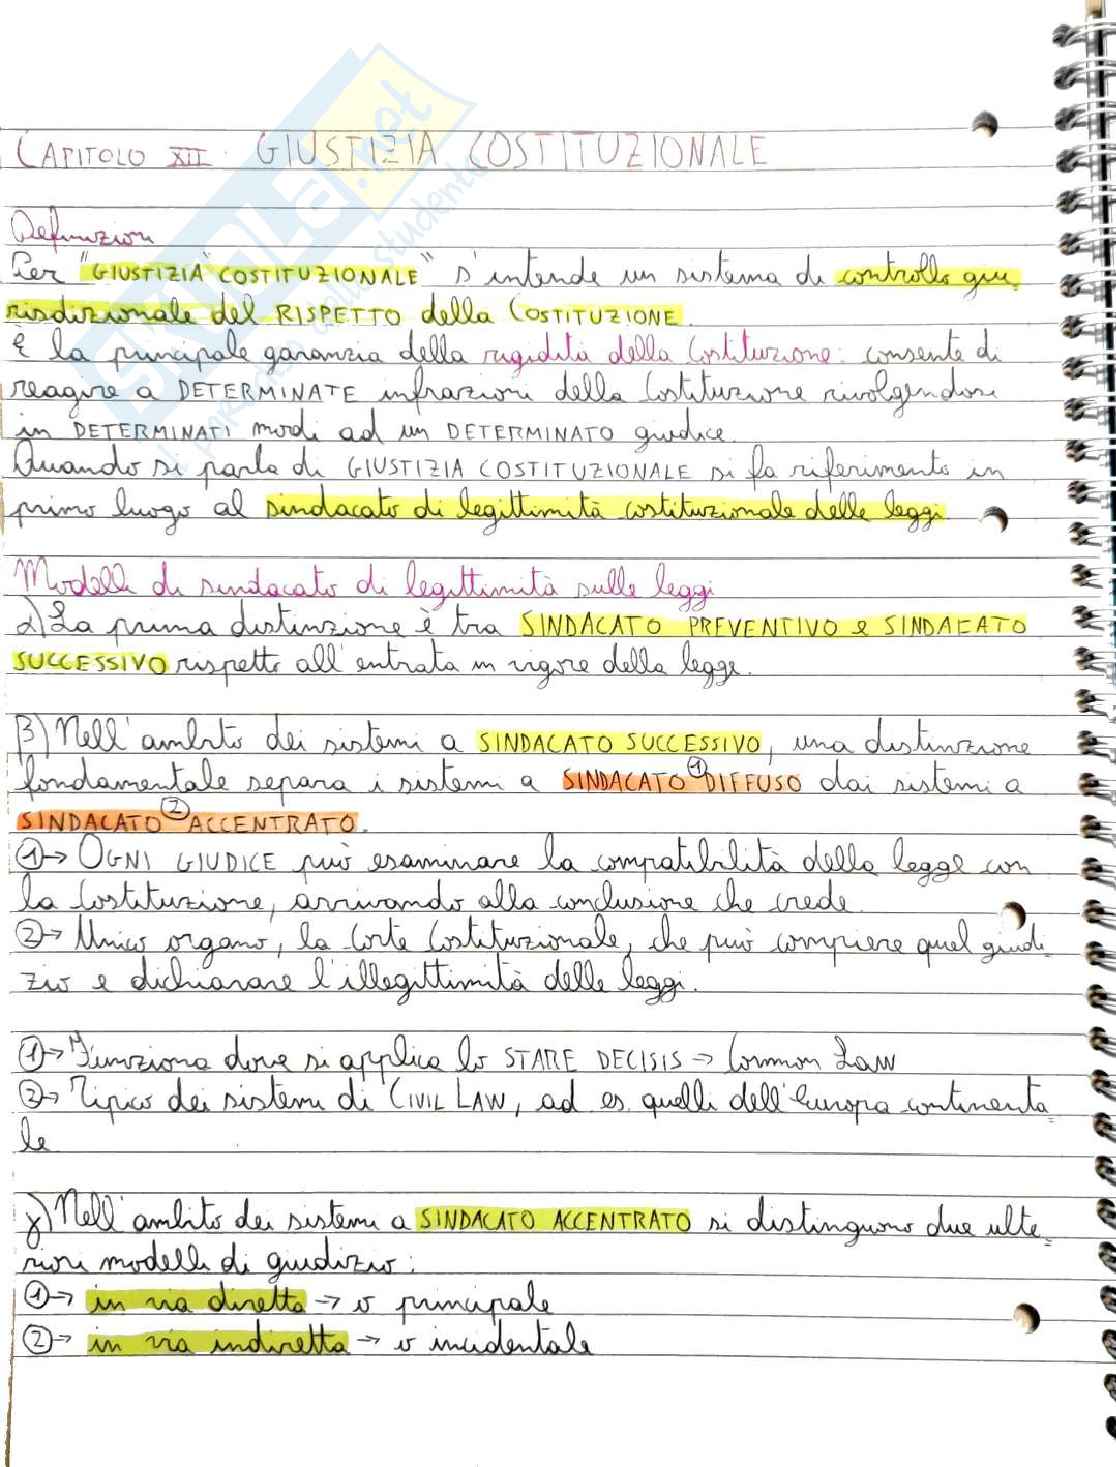 CAPITOLO XII. GIUSTIZIA COSTITUZIONALE
Definizioni
Per "GIUSTIZIA COSTITUZIONALE" s'intende un sistema di controllo giu
risdizionale del RISPETTO della COSTITUZIONE.
È la principale garanzia della rigidità della Costituzione: consente di
reagire a DETERMINATE infrazioni della Costituzione rivolgendosi
in DETERMINATI modi ad un DETERMINATO giudice.
Quando si parla di GIUSTIZIA COSTITUZIONALE si fa riferimento in
primo luogo al sindacato di legittimità costituzionale delle leggi
Modelli di sindacato di legittimità sulle leggi
α) La prima distinzione è tra SINDACATO PREVENTIVO e SINDACATO
SUCCESSIVO rispetto all'entrata in vigore della legge.
β) Nell'ambito dei sistemi a SINDACATO SUCCESSIVO, una distinzione
fondamentale separa i sistemi a SINDACATO ① DIFFUSO dai sistemi a
SINDACATO ② ACCENTRATO.
①→ OGNI GIUDICE può esaminare la compatibilità della legge con
la Costituzione, arrivando alla conclusione che crede.
②→ Unico organo, la Corte Costituzionale, che può compiere quel giudi-
zio e dichiarare l'illegittimità delle leggi.
①→ Funziona dove si applica lo STARE DECISIS → Common Law
②→ Tipico dei sistemi di CIVIL LAW, ad es. quelli dell'Europa continenta=
le
γ) Nell'ambito dei sistemi a SINDACATO ACCENTRATO si distinguono due ulte=
riori modelli di giudizio:
①→ in via diretta → o principale
②→ in via indiretta → o incidentale